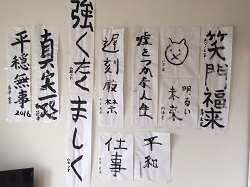 笑門福来
明るい
未来
嘘をつかない人生
遅刻厳禁
強くたくましく
真実一路
平穏無事
2016
平和
仕事